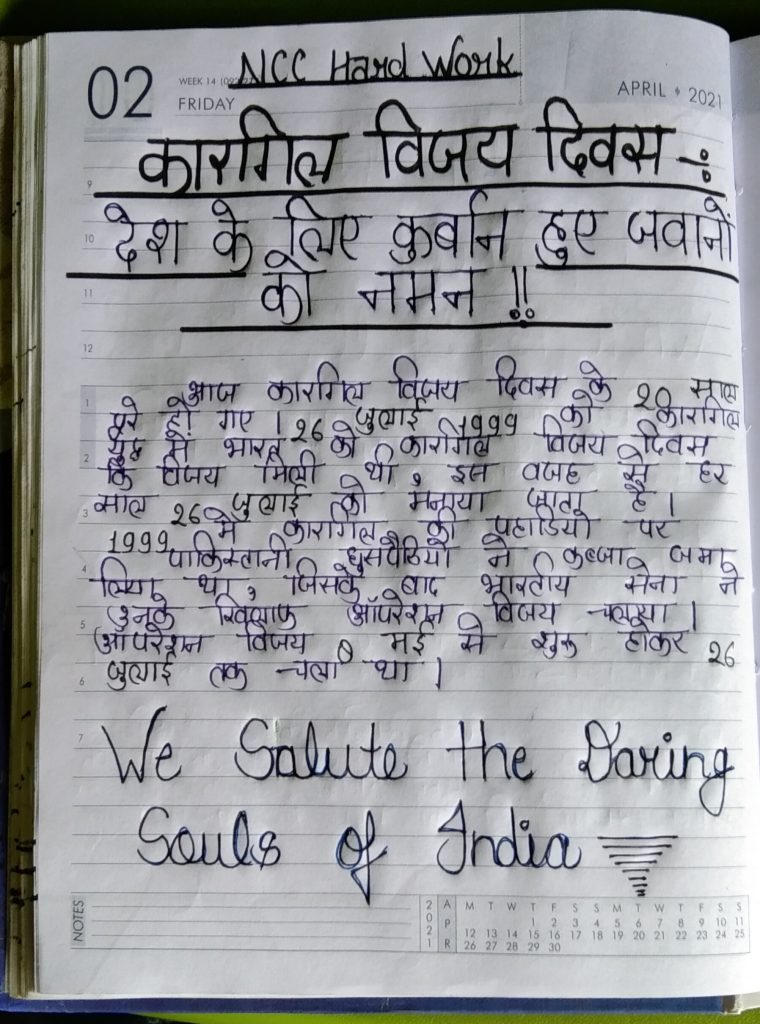 NCC Hard Work
02
WEEK 14
FRIDAY
APRIL • 2021
कारगिल विजय दिवस ÷
देश के लिए कुर्बान हुए जवानों
को नमन !!
आज कारगिल विजय दिवस के 20 साल
पूरे हो गए । 26 जुलाई 1999 को कारगिल
युद्ध में भारत को कारगिल विजय दिवस
कि विजय मिली थी, इस वजह से हर
साल 26 जुलाई को मनाया जाता है ।
1999 में कारगिल की पहाडियो पर
पाकिस्तानी घुसपैठियो ने कब्जा जमा
लिया था, जिसके बाद भारतीय सेना ने
उनके खिलाफ ऑपरेशन विजय चलाया ।
ऑपरेशन विजय 8 मई से शुरू होकर 26
जुलाई तक चला था ।
We Salute the Daring
Souls of India
9
10
11
12
1
2
3
4
5
6
7
NOTES
2021 APR
M T W T F S S M T W T F S S
1 2 3 4 5 6 7 8 9 10 11
12 13 14 15 16 17 18 19 20 21 22 23 24 25
26 27 28 29 30